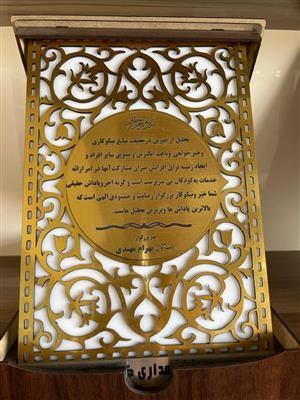 تجلیل از خیرین در حقیقت تبلیغ نیکوکاری
و خیر خواهی وباعث انگیزش و تشویق سایر افراد و
ایجاد زمینه برای افزایش میزان مشارکت آنها در امر ارائه
خدمات به کودکان بی سرپرست است و گرنه اجر و پاداش حقیقی
شما خیّر و نیکوکار بزرگوار رضایت و خشنودی الهی است که
بالاترین پاداش ها و برترین تجلیل هاست.
خیر بزرگوار
بهرام مهبدی